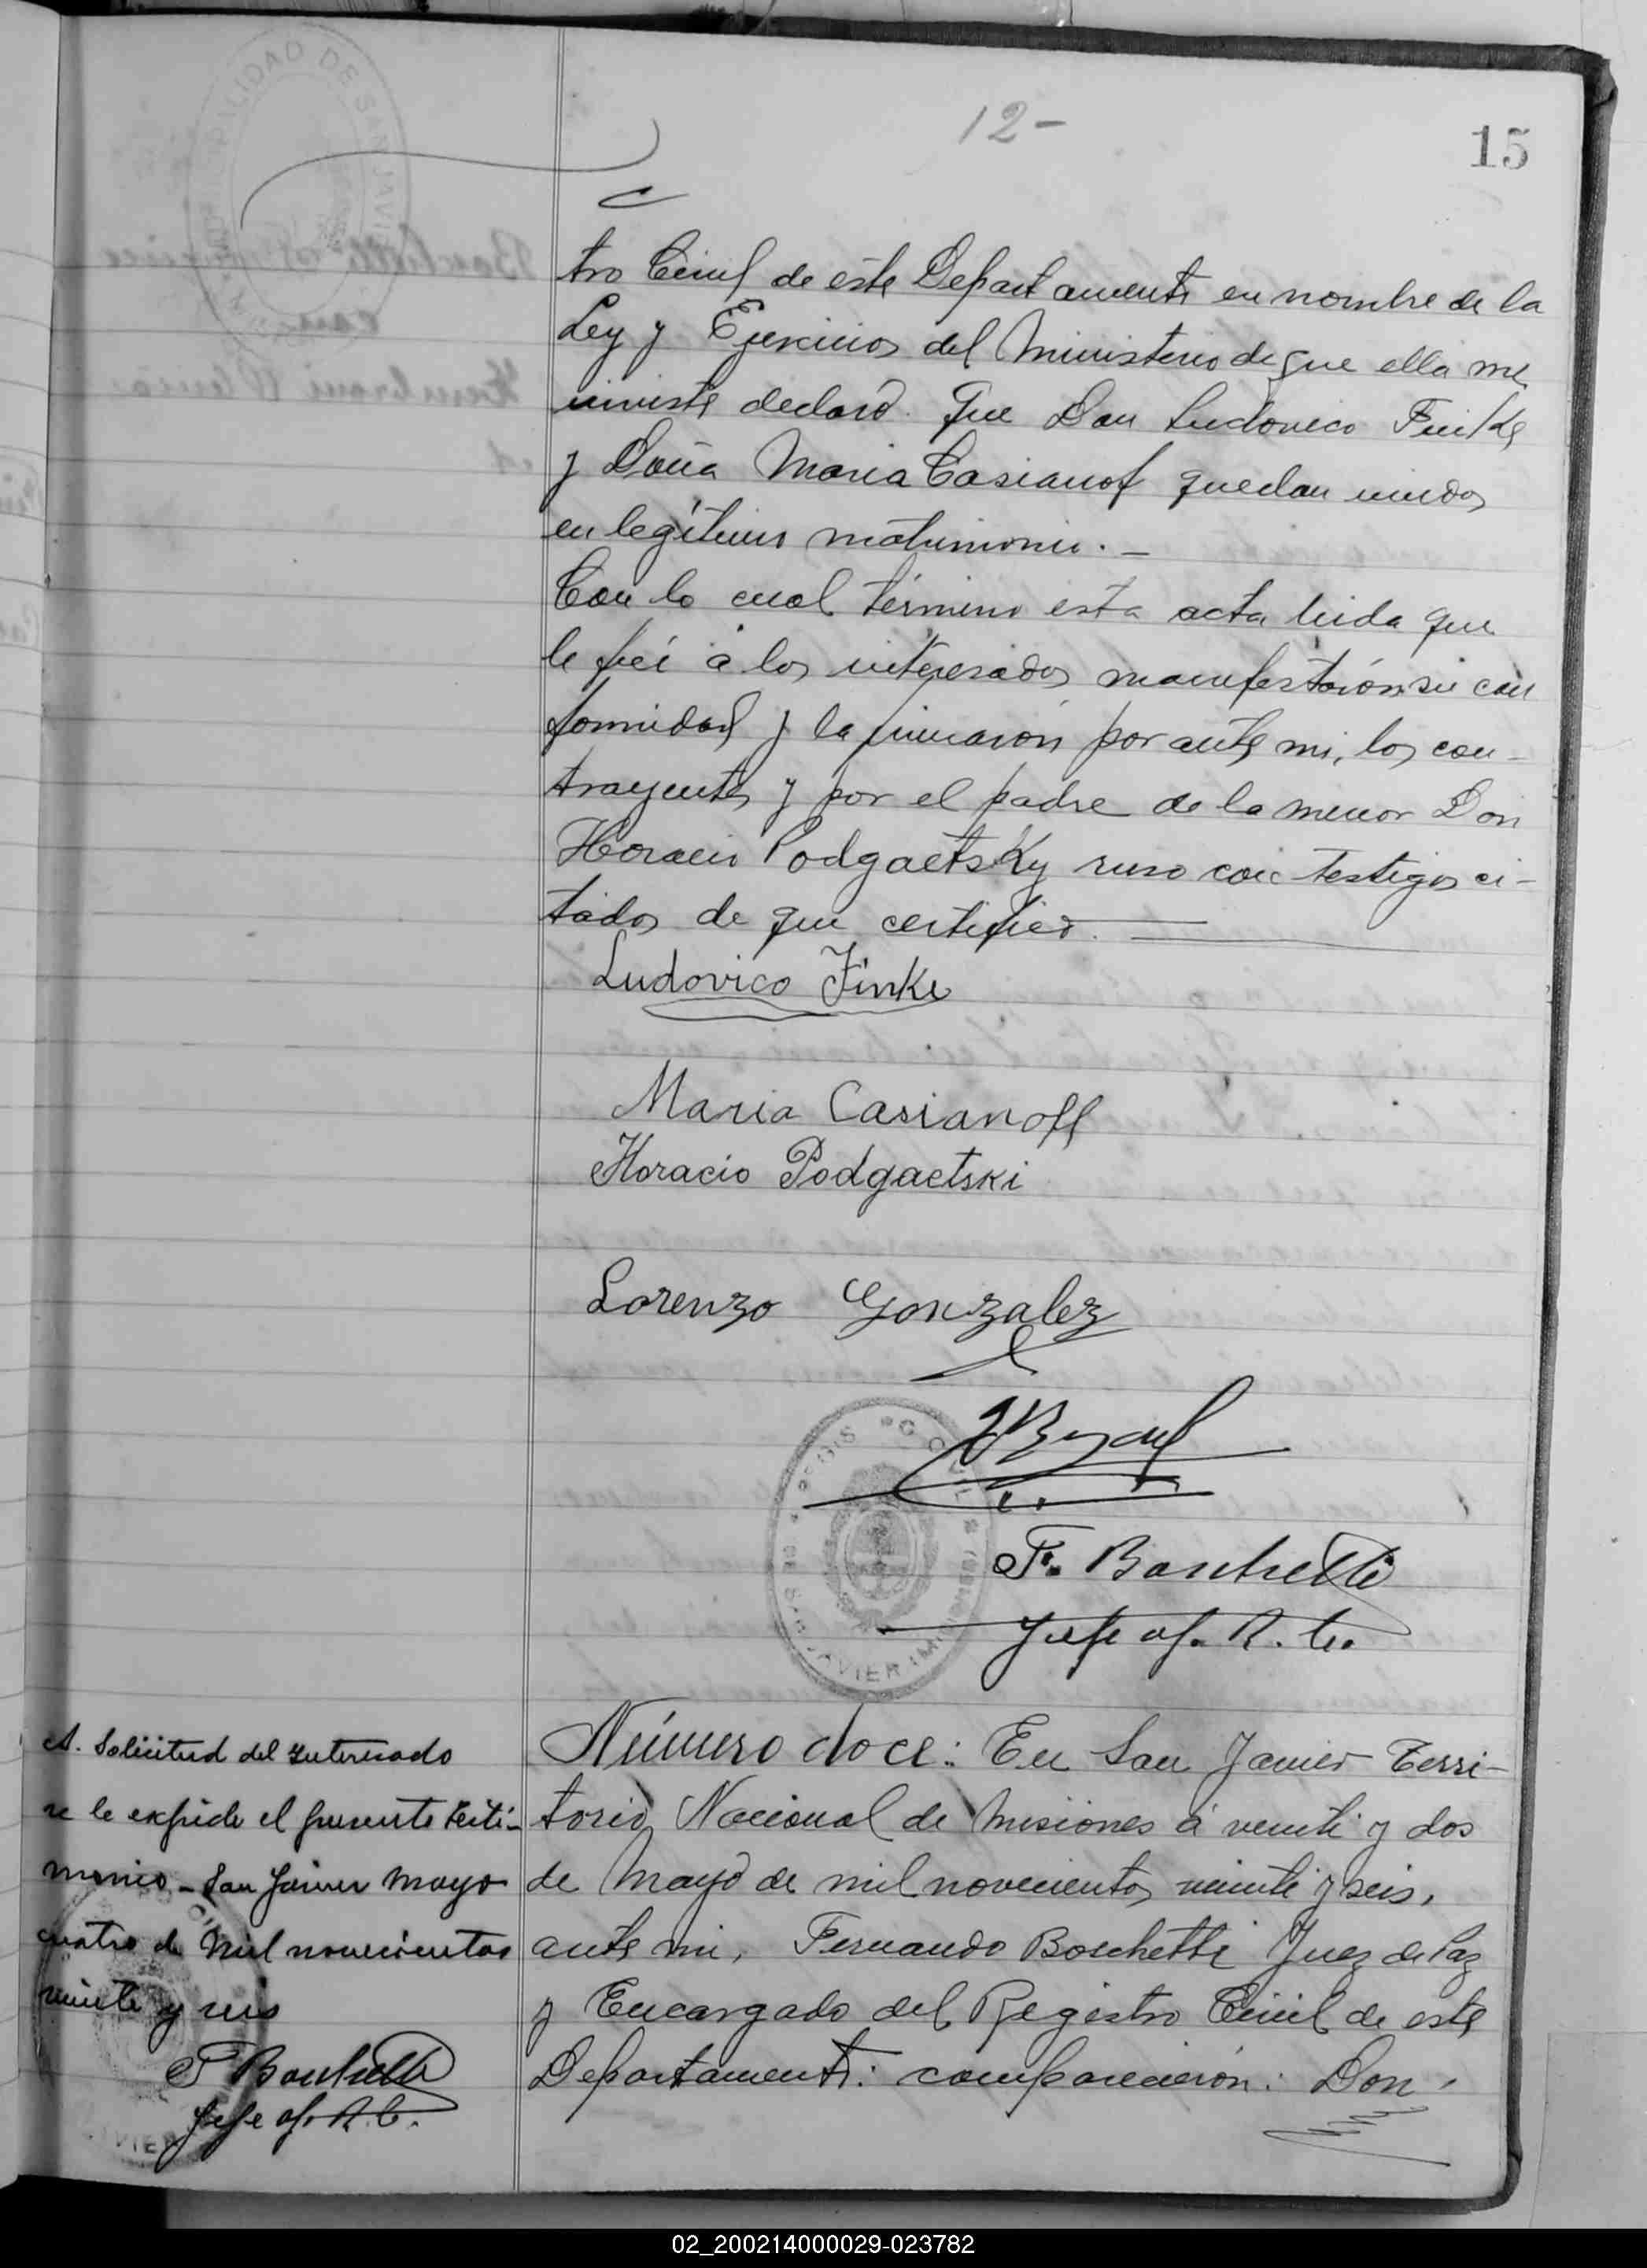 12-
15
tro Civil de este Departamento en nombre de la
Ley y Ejercicios del Ministerio de que ella me
inviste declaró. Que Don Ludovico Finke
y Doña Maria Casianof quedan unidos
en legítimo matrimonio. -
Con lo cual términó esta acta leida que
le fué á los interesados manifestarón su con
formidad y la firmarón por ante mi, los con-
trayentes y por el padre de la menor Don
Horacio Podgaetsky ruso con testigos ci-
tados de que certifico.
Ludovico Finke
Maria Casianoff
Horacio Podgaetski
Lorenzo Gonzalez
F. Boschetti
Jefe of. R. C.
A. Solicitud del interesado
se le expide el presente testi-
monio - San Javier Mayo
cuatro de mil novecientos
veinte y seis
F Boschetti
Jefe of. R. C.
Número doce: En San Javier Terri-
torio Nacional de Misiones á veinte y dos
de Mayo de mil novecientos veinte y seis,
ante mi, Fernando Boschetti Juez de Paz
y Encargado del Registro Civil de este
Departamento: comparecieron: Don
02_200214000029-023782